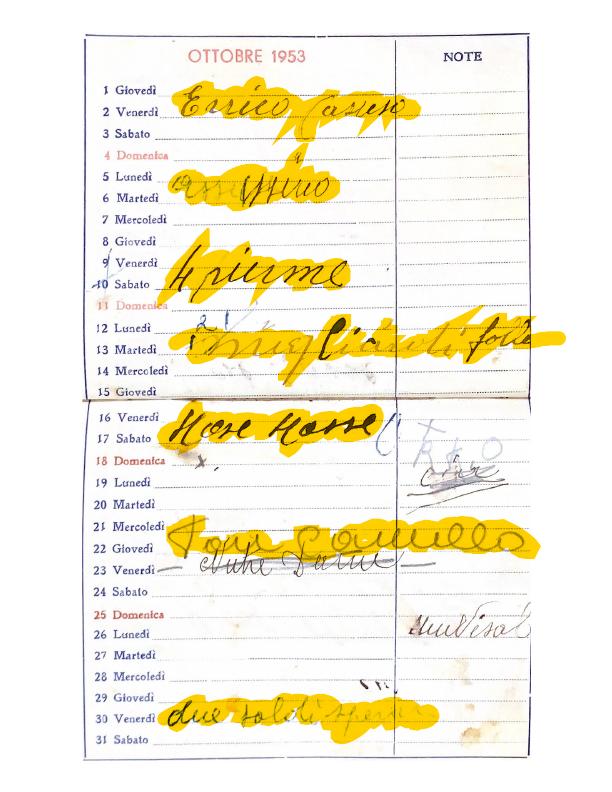 OTTOBRE 1953 NOTE
1 Giovedì
2 Venerdì Enrico Caruso
3 Sabato
4 Domenica
5 Lunedì
6 Martedì assassino
7 Mercoledì
8 Giovedì
9 Venerdì
10 Sabato 4 piume
11 Domenica
12 Lunedì
13 Martedì
14 Mercoledì
15 Giovedì
16 Venerdì
17 Sabato
18 Domenica x
19 Lunedì
20 Martedì
21 Mercoledì
22 Giovedì Camillo
23 Venerdì
24 Sabato
25 Domenica
26 Lunedì
27 Martedì
28 Mercoledì
29 Giovedì
30 Venerdì due soldi
31 Sabato